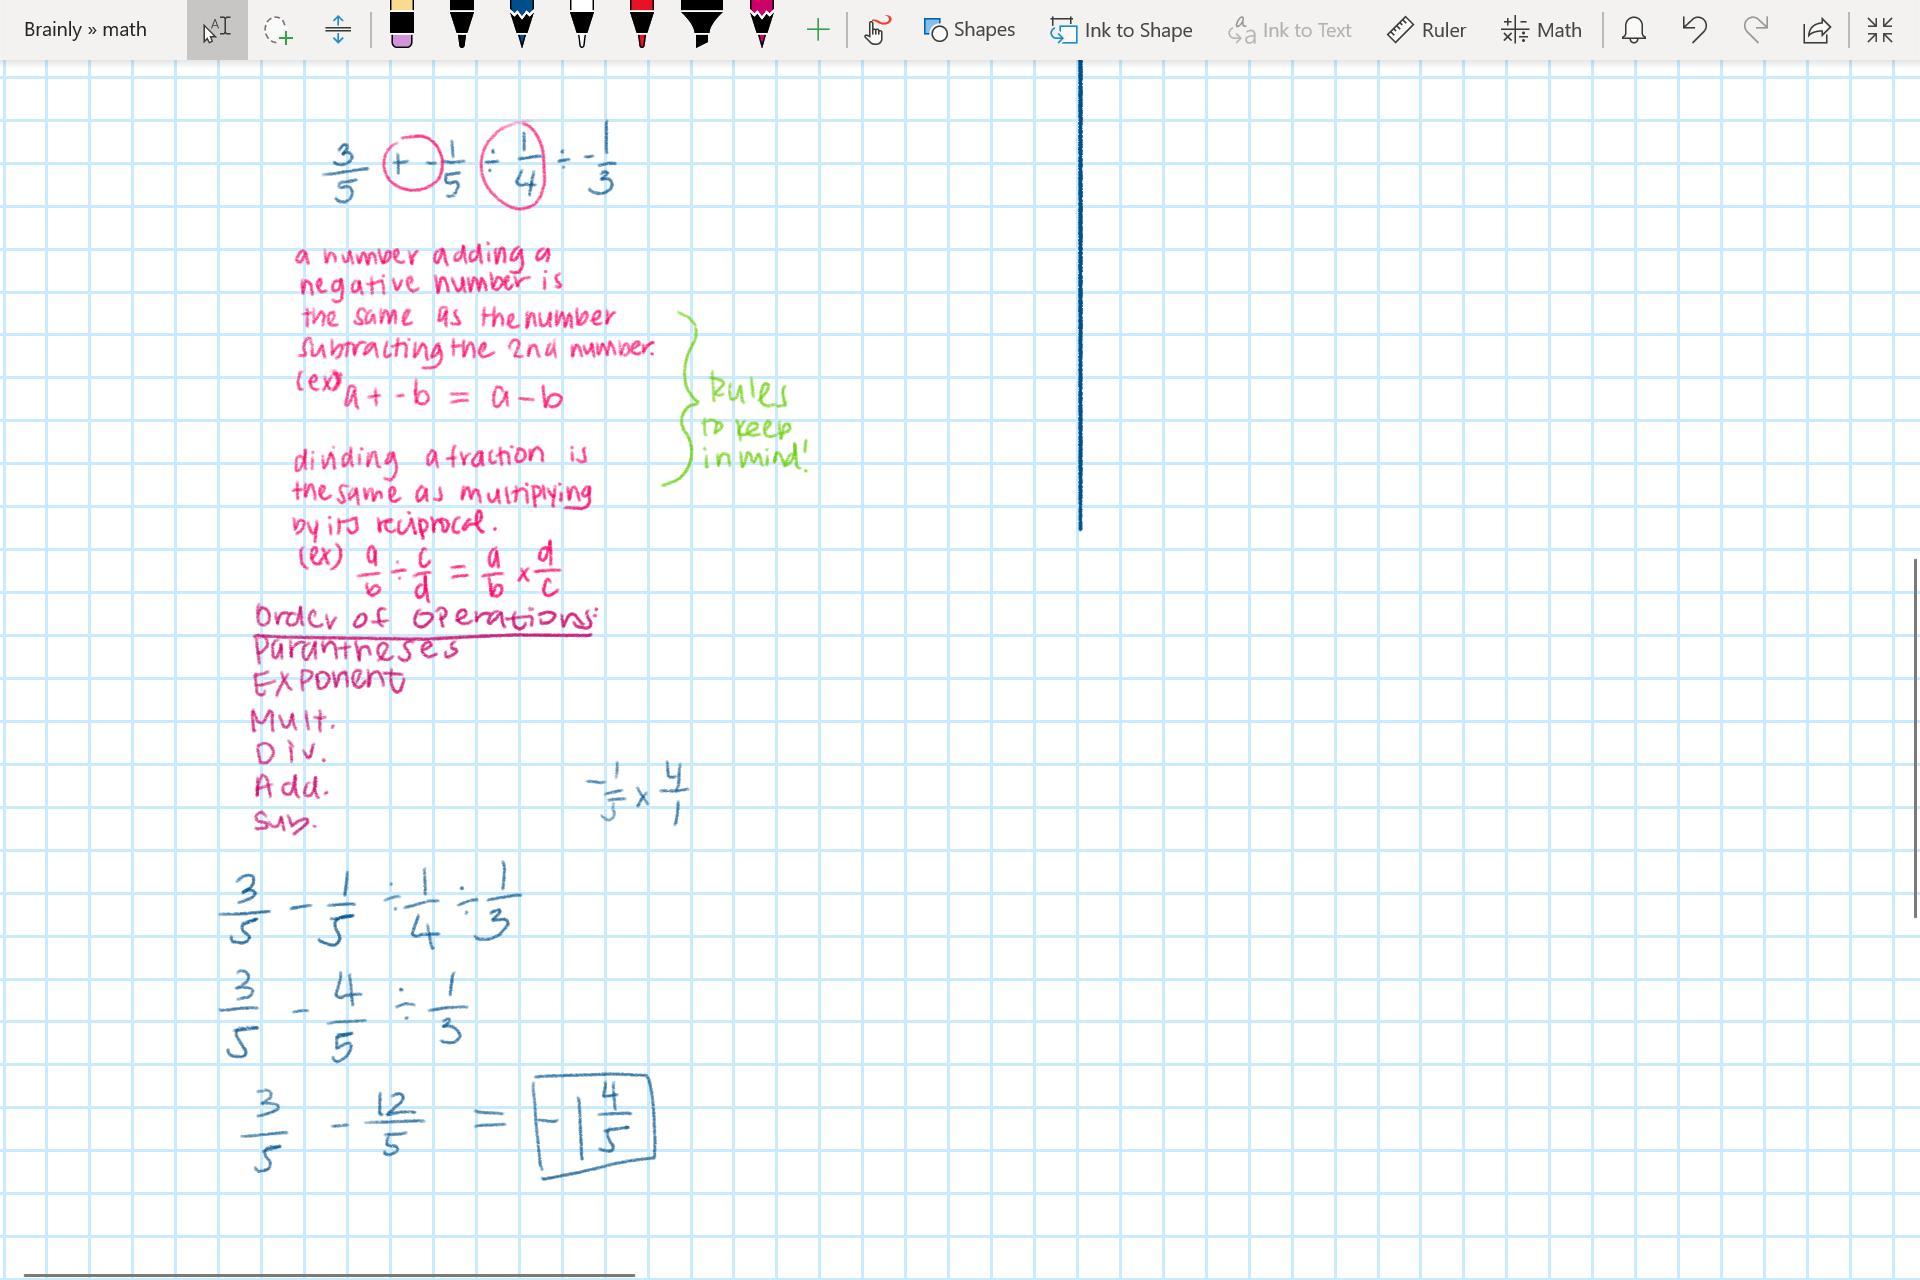 Brainly » math
Shapes
Ink to Shape
Ink to Text
Ruler
Math
3/5 + -1/5 ÷ 1/4 ÷ -1/3
a number adding a
negative number is
the same as the number
subtracting the 2nd number.
(ex) a + -b = a - b
dividing a fraction is
the same as multiplying
by its reciprocal.
(ex) a/b ÷ c/d = a/b × d/c
Rules
to keep
in mind!
Order of Operations:
Parantheses
Exponent
Mult.
Div.
Add.
Sub.
-1/5 × 4/1
3/5 - 1/5 ÷ 1/4 ÷ 1/3
3/5 - 4/5 ÷ 1/3
3/5 - 12/5 = -1 4/5